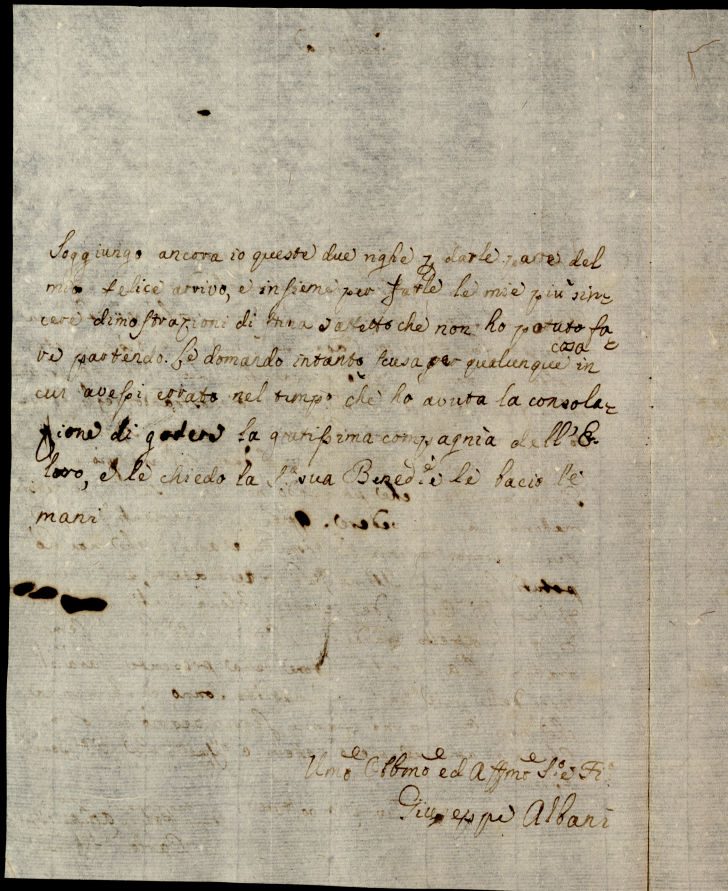 Soggiungo ancora io queste due righe p darle parte del
mio felice arrivo, e insieme per farle le mie più sin=
cere dimostrazioni di affetto che non ho potuto fa=
re partendo. Le domando intanto scusa per qualunque cosa in
cui avessi errato nel tempo che ho avuta la consola=
zione di godere la gratissima compagnia dell'E.
loro, e le chiedo la Sta sua Bened.e e le bacio le
mani
Umo Obbmo ed Affmo S.e e Fi.o
Giuseppe Albani